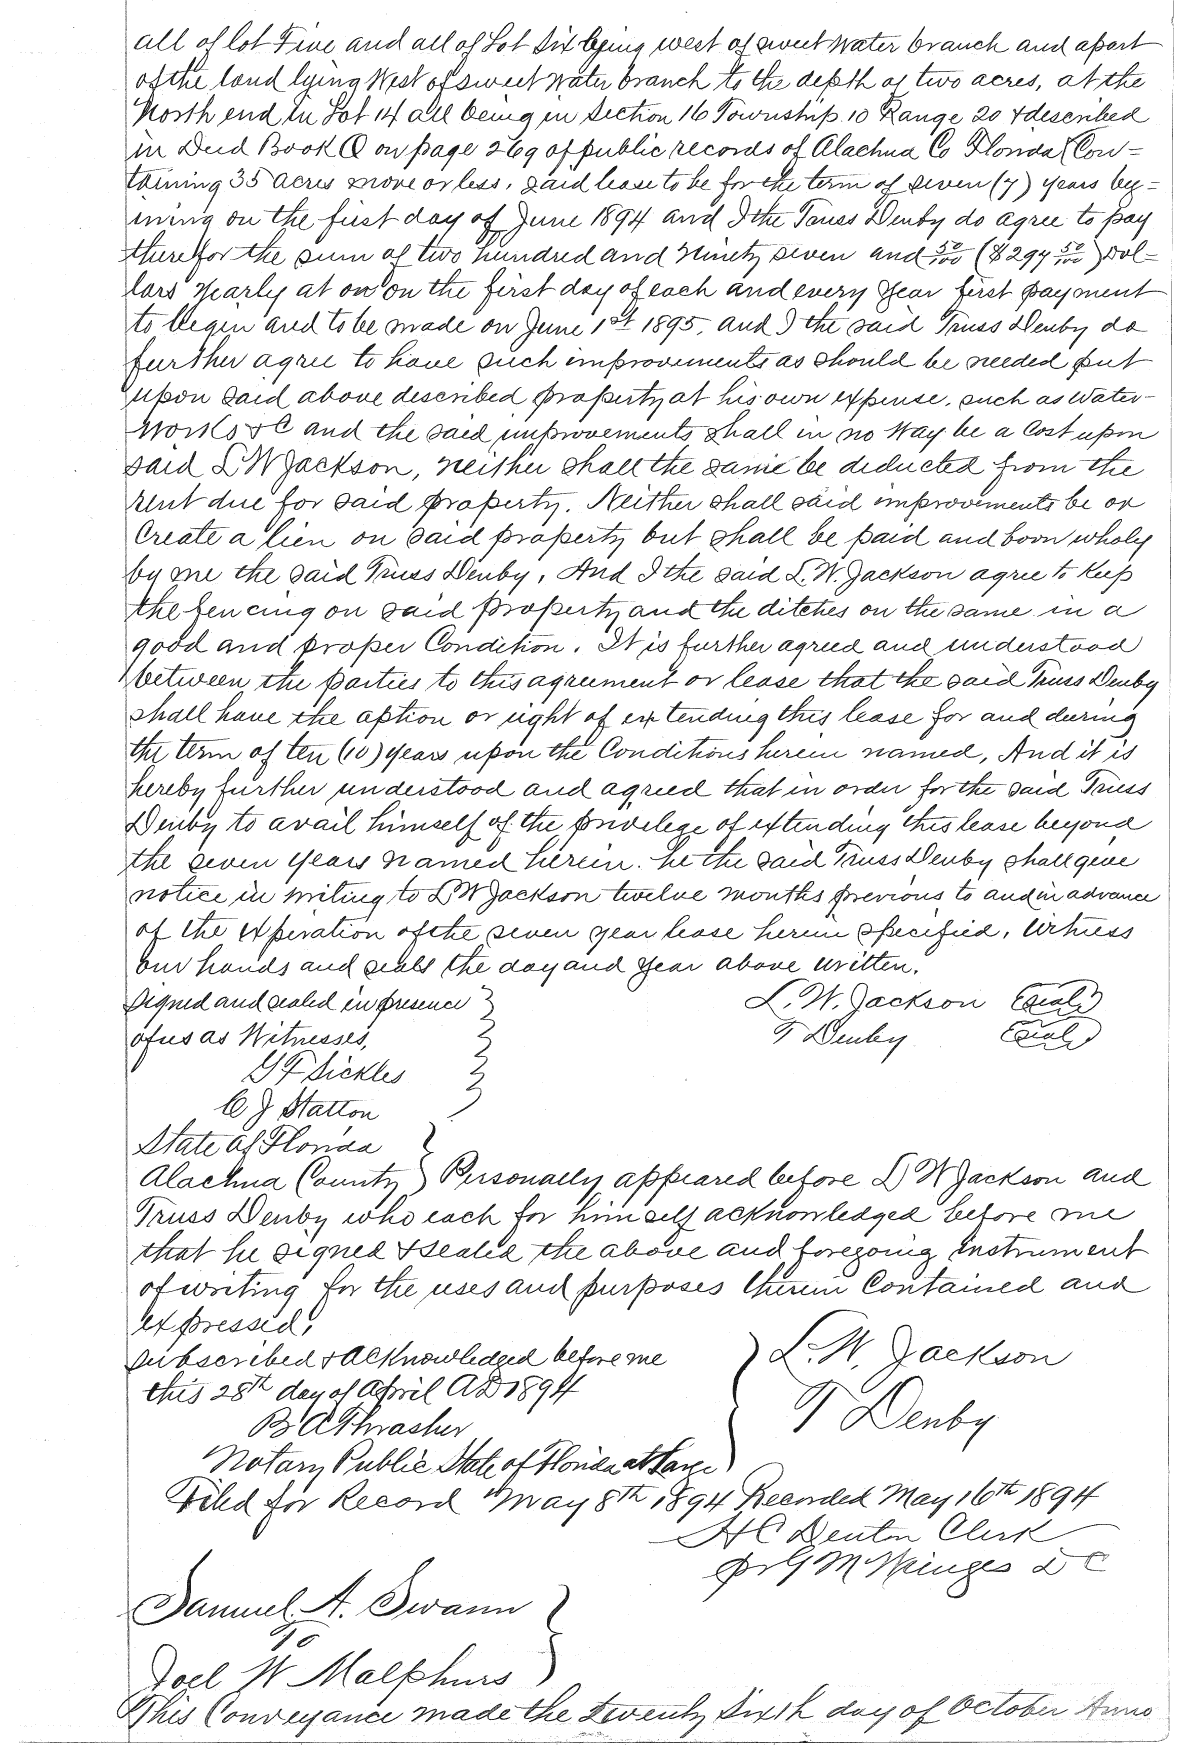 all of lot Five and all of Lot Six lying west of sweet Water branch and apart
of the land lying West of sweet Water branch to the depth of two acres, at the
North end in Lot 14 all being in Section 16 Township 10 Range 20 & described
in Deed Book Q on page 269 of public records of Alachua Co Florida (Con-
taining 35 acres more or less, said lease to be for the term of seven (7) years beg-
ining on the first day of June 1894 and I the Truss Denby do agree to pay
therefor the sum of two hundred and Ninety seven and 50/100 ($297 50/100) Dol-
lars yearly at or on the first day of each and every year first payment
to begin and to be made on June 1st 1895, and I the said Truss Denby do
further agree to have such improvements as should be needed put
upon said above described property at his own expense, such as Water-
Works &C and the said improvements shall in no Way be a Cost upon
said L W Jackson, neither shall the same be deducted from the
rent due for said property. Neither shall said improvements be or
Create a lien on said property but shall be paid and born wholy
by me the said Truss Denby, And I the said L. W. Jackson agree to keep
the fencing on said property and the ditches on the same in a
good and proper Condition. It is further agreed and understood
between the parties to this agreement or lease that the said Truss Denby
shall have the option or right of extending this lease for and during
the term of ten (10) years upon the Conditions herein named, And it is
hereby further understood and agreed that in order for the said Truss
Denby to avail himself of the privelege of extending this lease beyond
the seven years named herein. he the said Truss Denby shall give
notice in writing to L W Jackson twelve months previous to and in advance
of the experation of the seven year lease herein specified, Witness
our hands and seals the day and year above written.
Signed and sealed in presence L. W. Jackson (Seal)
of us as Witnesses, T Denby (Seal)
G F Sickles
C J Statton
State of Florida
Alachua County } Personally appeared before L W Jackson and
Truss Denby who each for himself acknowledged before me
that he signed & sealed the above and foregoing instrument
of writing for the uses and purposes therein Contained and
expressed,
Subscribed & acknowledged before me L. W. Jackson
this 28th day of April AD 1894 T Denby
B A Thrasher
Notary Public State of Florida at Large
Filed for Record May 8th 1894 Recorded May 16th 1894
H C Denton Clerk
pr G M D C
Samuel A. Swann
To
Joel W Malphurs
This Conveyance made the Twenty Sixth day of October Anno